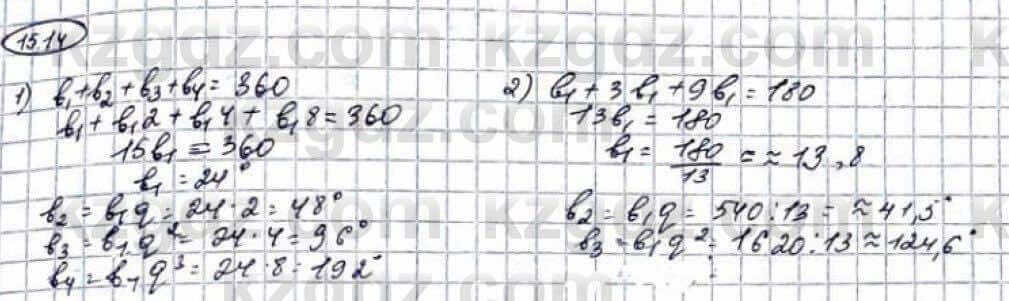 15.14
1) b₁+b₂+b₃+b₄=360
b₁+b₁2+b₁4+b₁8=360
15b₁=360
b₁=24°
b₂=b₁q=24·2=48°
b₃=b₁q²=24·4=96°
b₄=b₁q³=24·8=192°
2) b₁+3b₁+9b₁=180
13b₁=180
b₁=180/13=≈13,8
b₂=b₁q=540:13=≈41,5°
b₃=b₁q²=1620:13≈124,6°
kzgdz.com